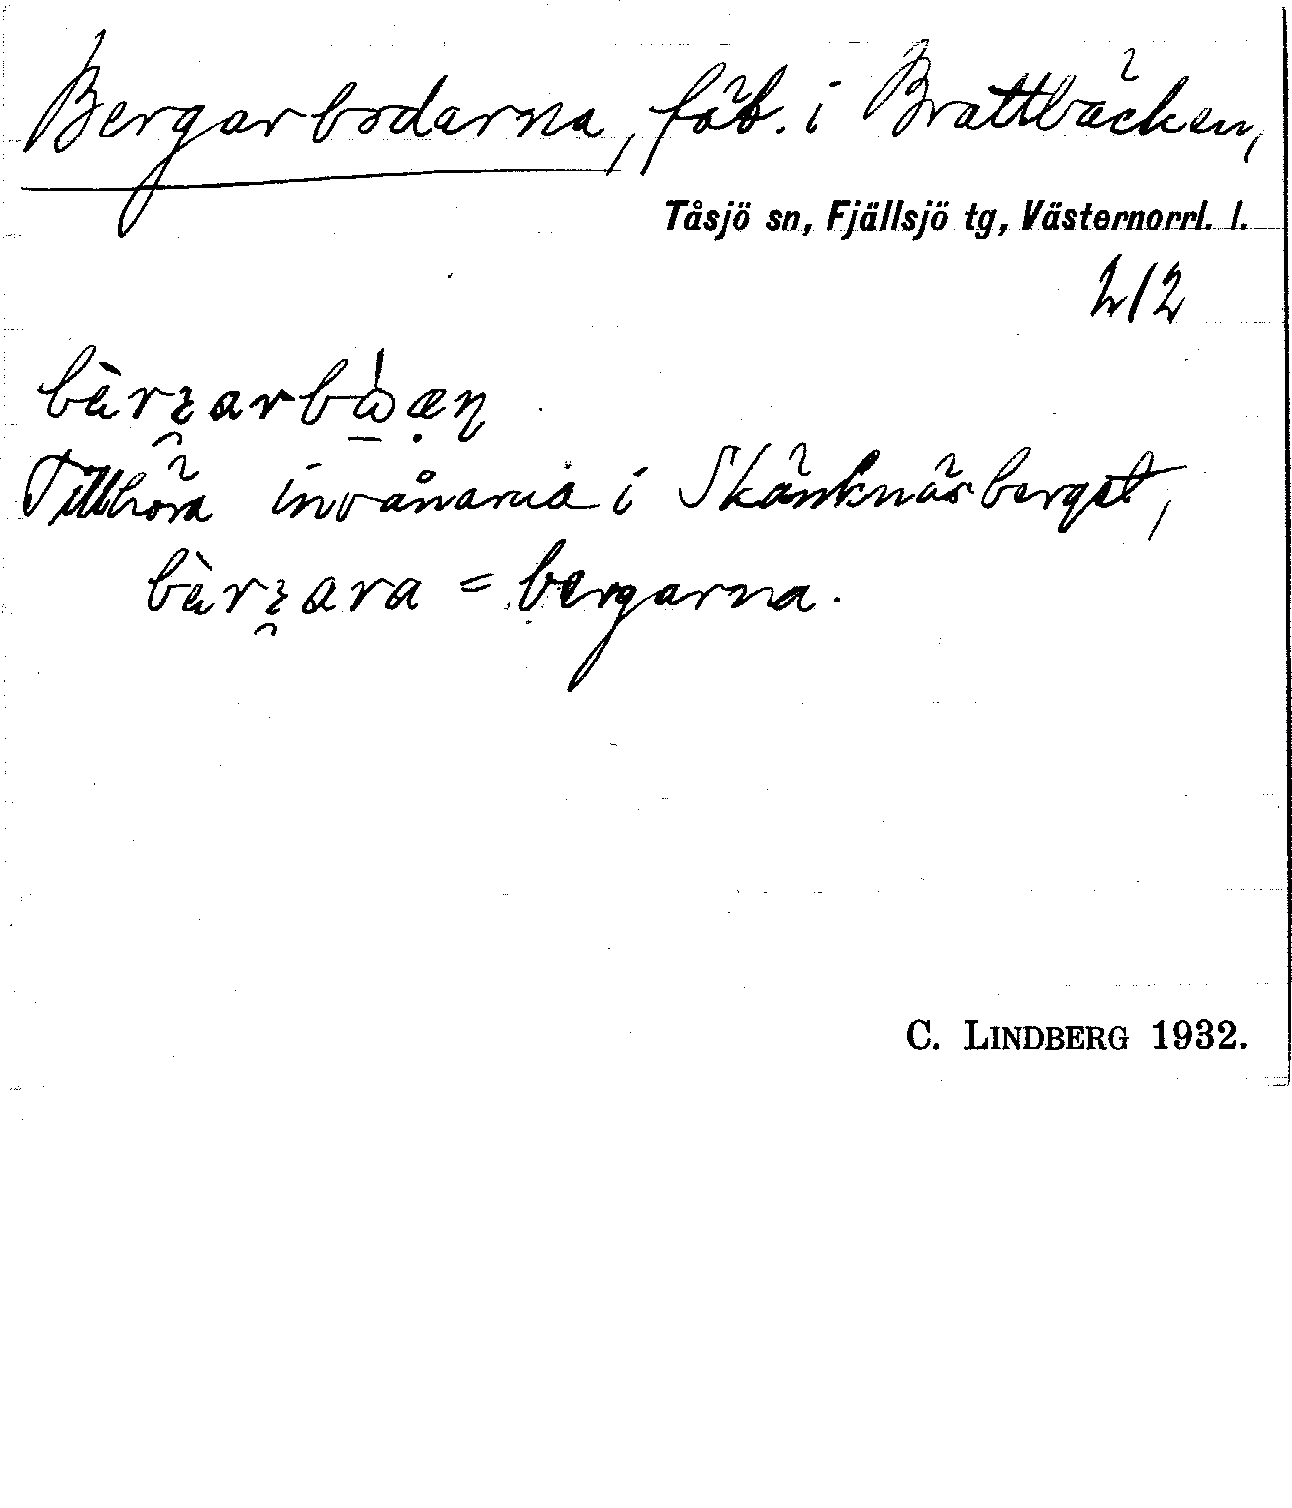 Bergarbodarna, fäb. i Brattbäcken,
Tåsjö sn, Fjällsjö tg, Västernorrl. l.
2/2
Tillhöra invånarna i Skänknäsberget,
= bergarna.
C. LINDBERG 1932.